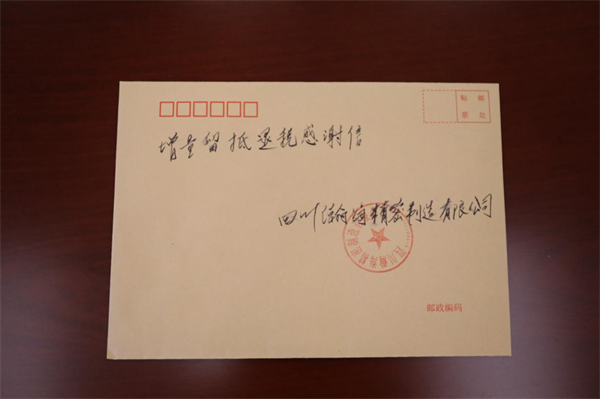 贴 邮
票 处
增量留抵退税感谢信
四川瀚海精密制造有限公司
邮政编码